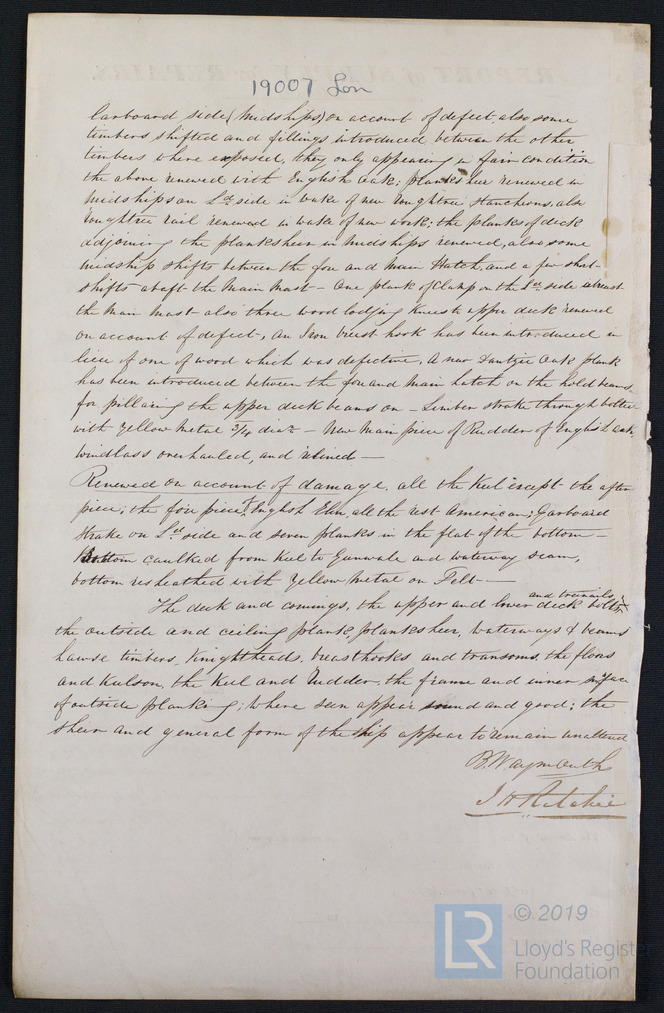 REPORT of SURVEY for REPAIRS.
19007 Lon
larboard side (Midships) on account of defect, also some
timbers shifted and fillings introduced between the other
timbers where exposed, they only appearing in fair condition
the above renewed with English Oak; planksheer renewed in
midships on Ld side in wake of new roughtree Stanchions, also
roughtree rail renewed in wake of new work; the planks of deck
adjoining the planksheer in midships renewed, also some
midship shifts between the fore and Main Hatch, and a few short
shifts abaft the Main Mast — One plank of Clamp on the Ld side abreast
the Main Mast also three wood lodging knees to upper deck renewed
on account of defect, An Iron breast hook has been introduced in
lieu of one of wood which was defective, A new Dantzic Oak plank
has been introduced between the fore and main hatch on the hold beams
for pillaring the upper deck beams on — Limber strake through bolted
with Yellow Metal 3/4 diar — New Main piece of Rudder of English Oak
Windlass overhauled, and refined —
Renewed on account of damage, all the Keel except the after
piece; the fore piece English Elm, all the rest American; Garboard
Strake on Ld side and seven planks in the flat of the bottom —
Bottom caulked from Keel to Gunwale and waterway seam,
bottom resheathed with Yellow Metal on Felt —
The deck and comings, the upper and lower deck bolts, and treenails
the outside and ceiling plank, planksheer, waterways & beams
hawse timbers, Knightheads, breasthooks and transoms, the floors
and Keelson, the Keel and Rudder, the frame and inner surface
of outside planking; where seen appear sound and good; the
sheer and general form of the ship appear to remain unaltered
B. Waymouth
J H Ritchie
LR
© 2019
Lloyd's Register
Foundation